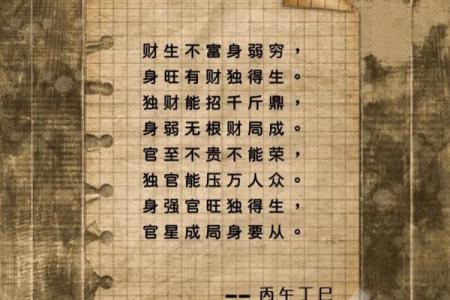 财生不富身弱穷，
身旺有财独得生。
独财能招千斤鼎，
身弱无根财局成。
官至不贵不能荣，
独官能压万人众。
身强官旺独得生，
官星成局身要从。
-- 丙午丁巳